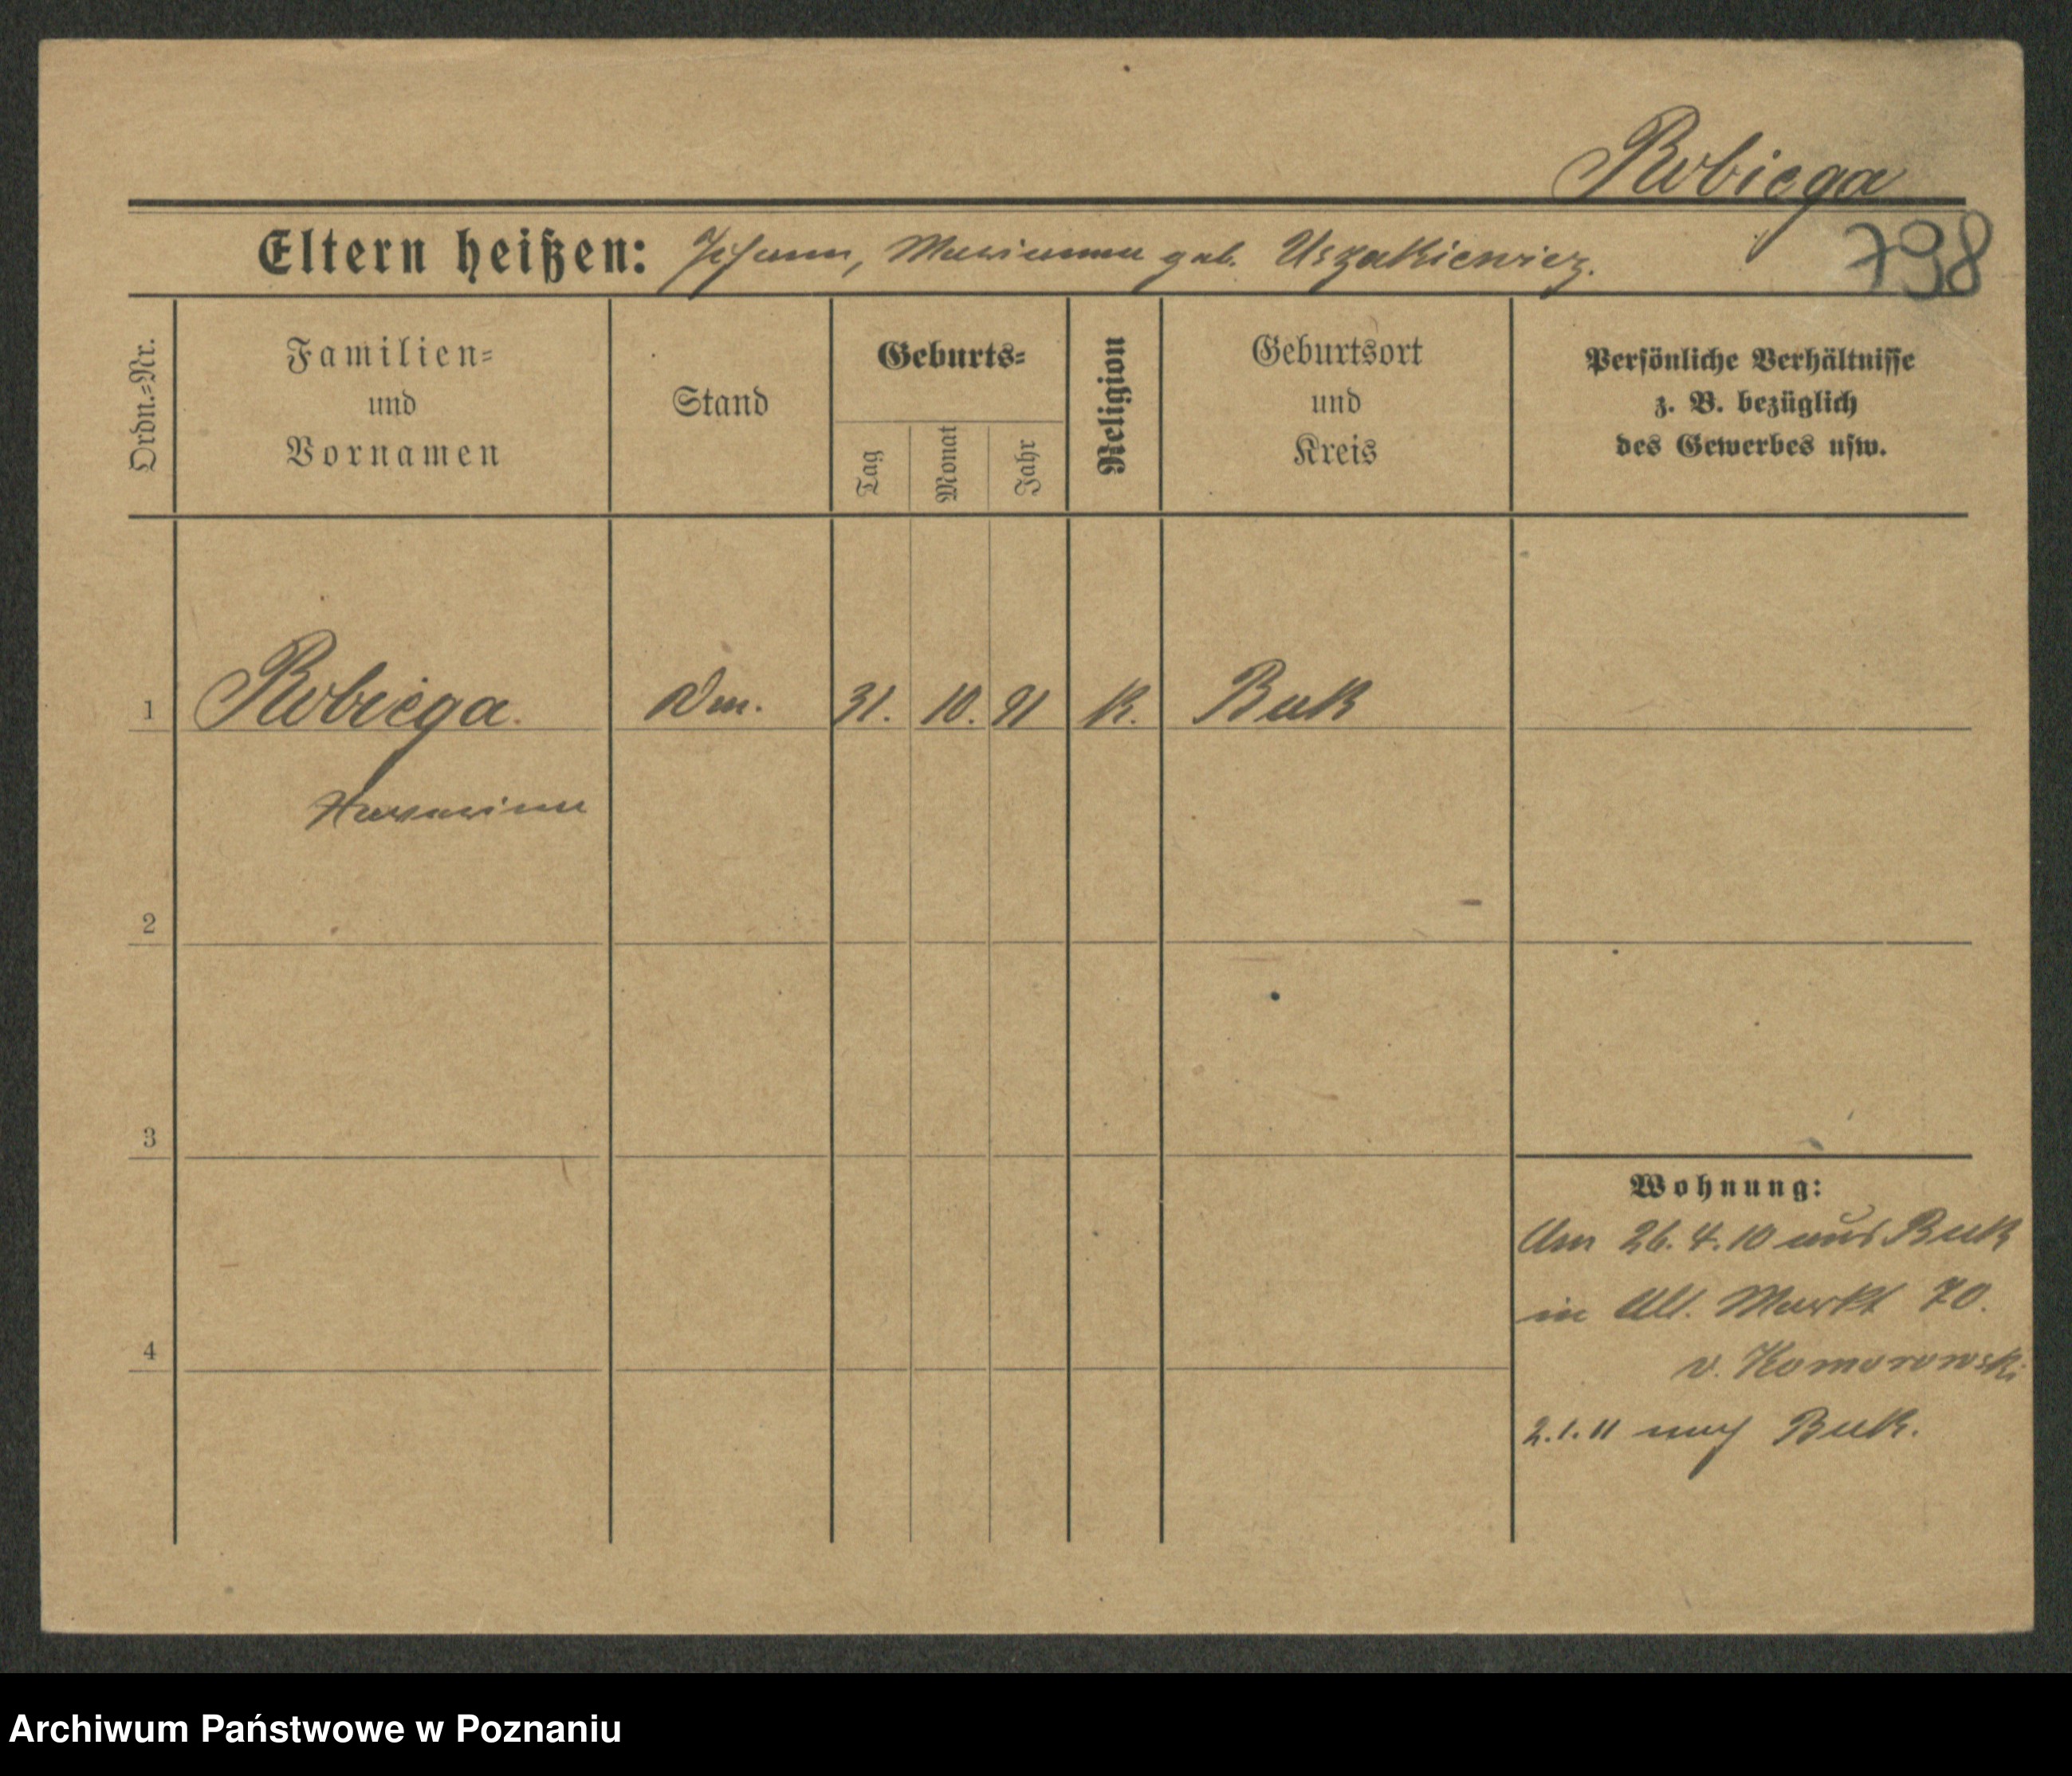 Robiega
Eltern heißen: Johann, Marianna geb. Uszakiewicz.
798
Ordn.=Nr.
Familien=
und
Vornamen
Stand
Geburts=
Tag
Monat
Jahr
Religion
Geburtsort
und
Kreis
Persönliche Verhältnisse
z. B. bezüglich
des Gewerbes usw.
1 Robiega. 31. 10. 91 K. Buk
2
3
4
Wohnung:
Am 26.4.10 aus Buk
in Alt. Markt 70.
v. Komorowski
2.1.11 nach Buk.
Archiwum Państwowe w Poznaniu